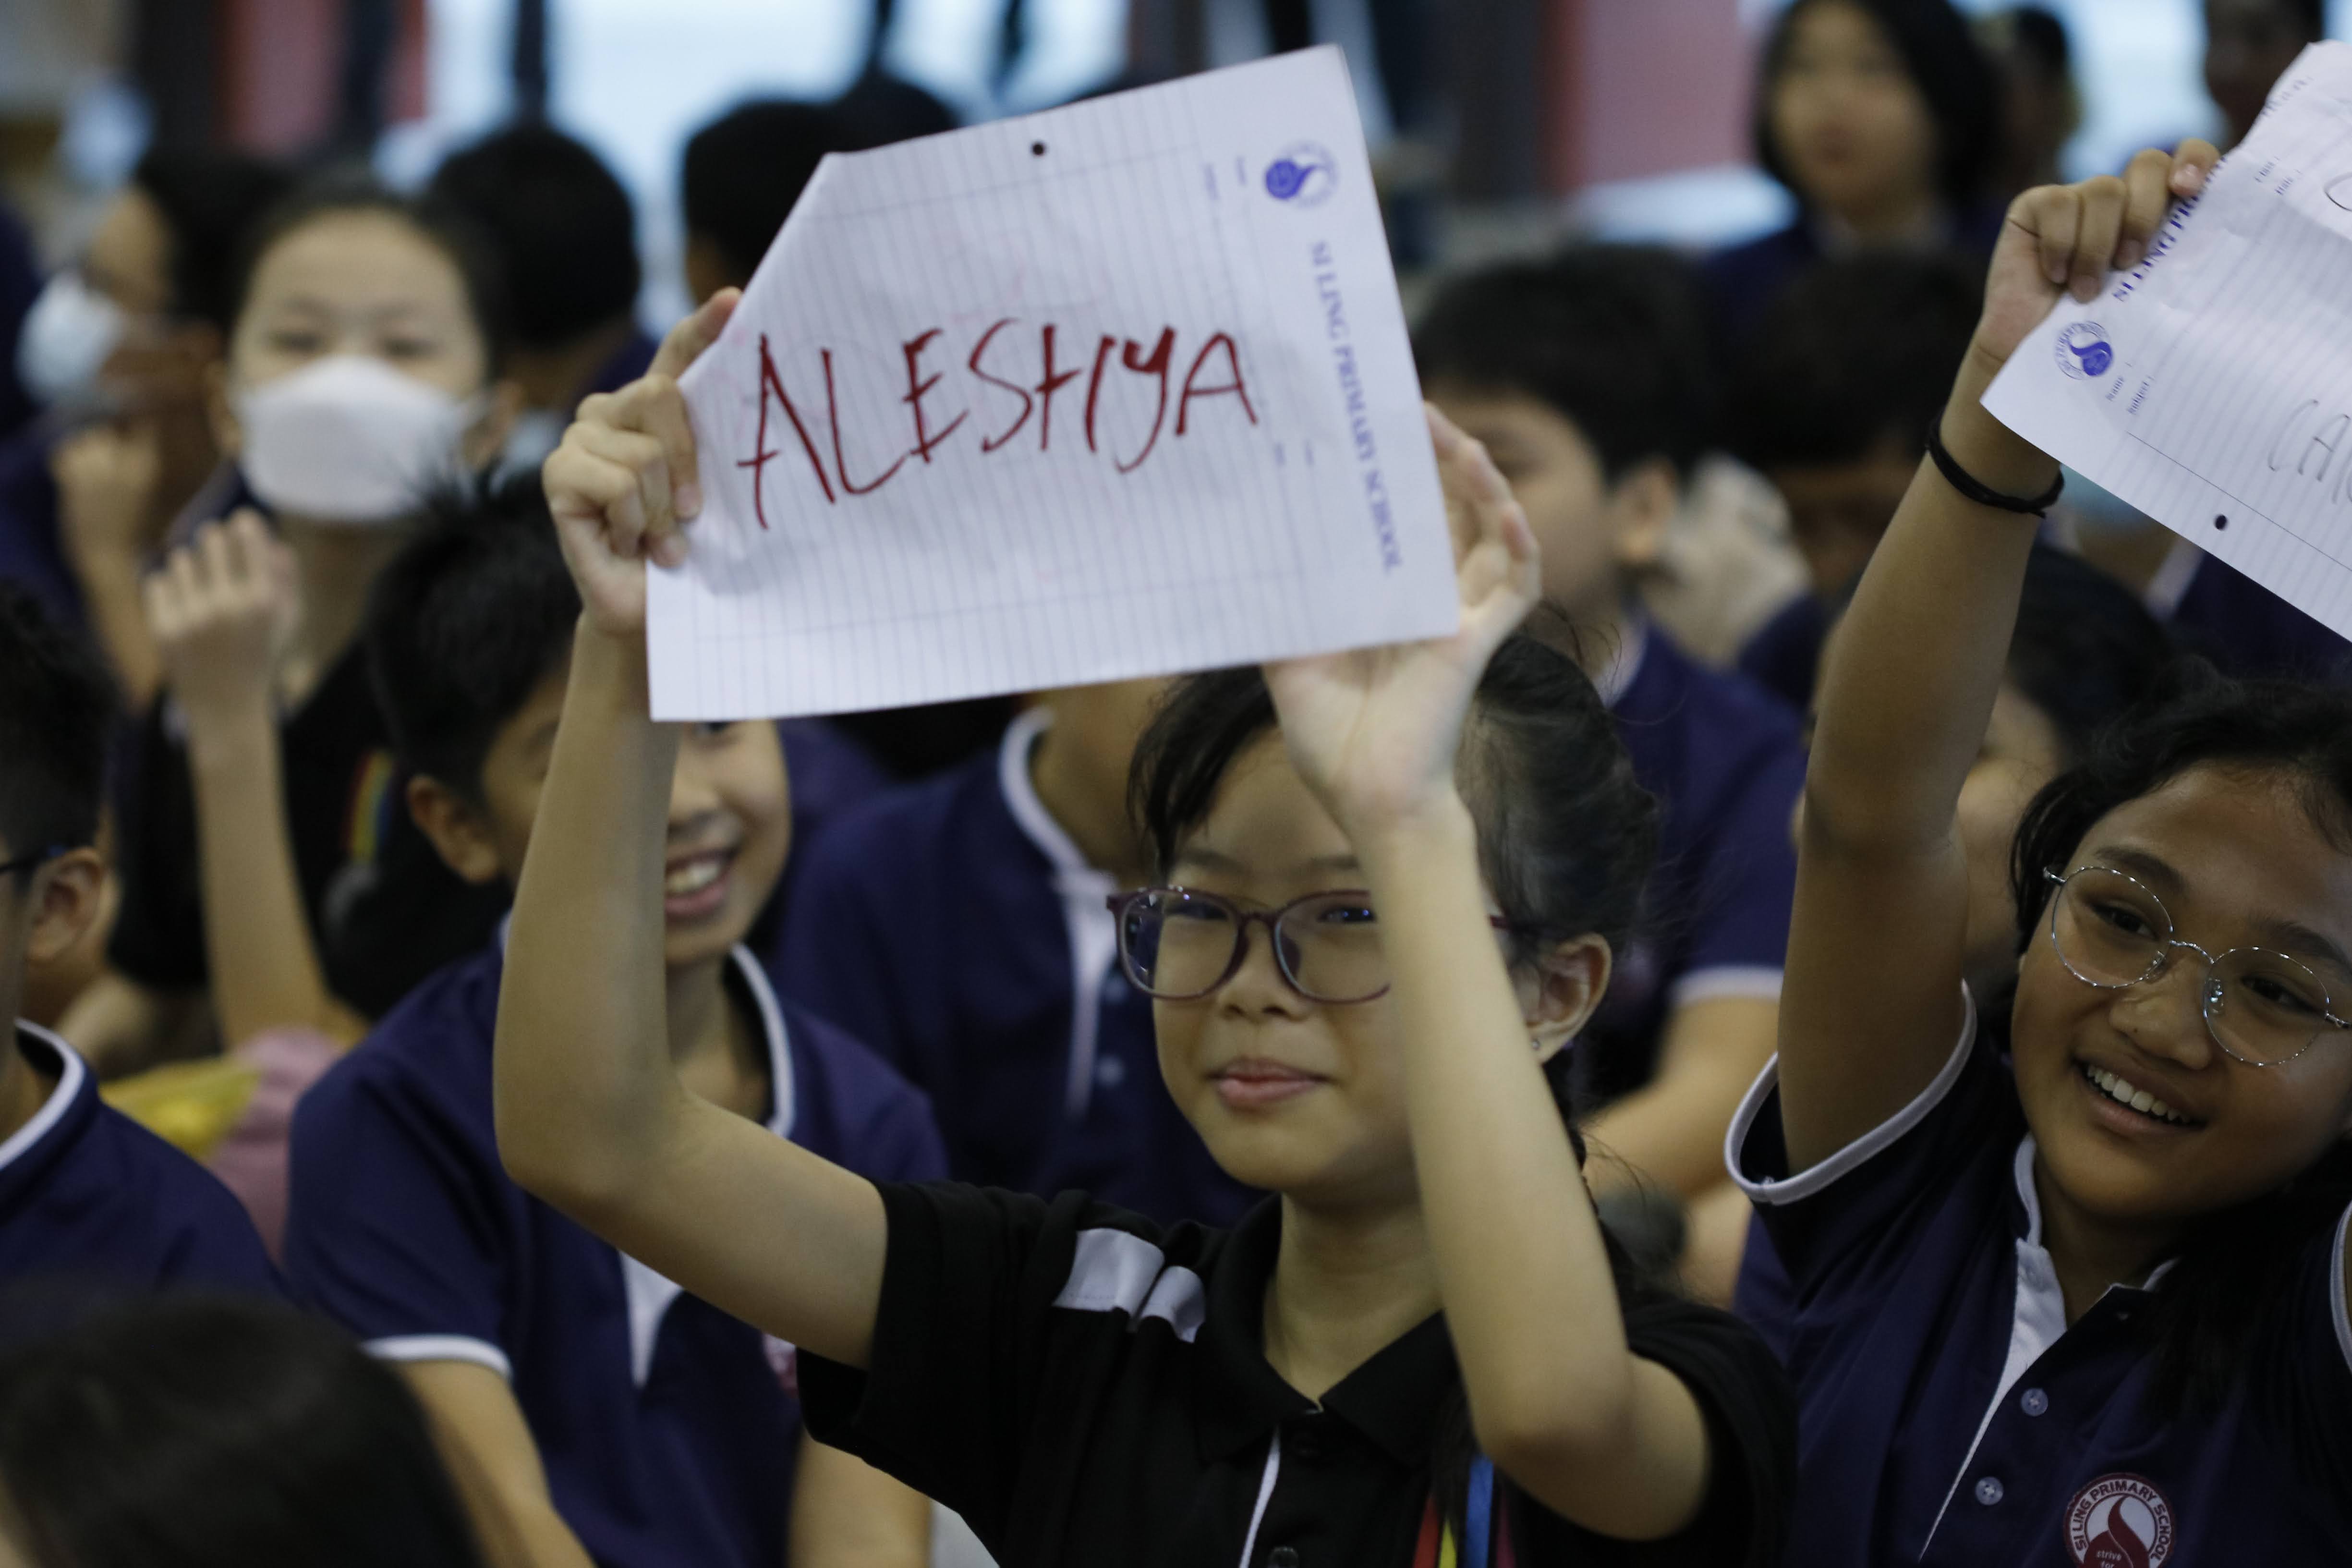 ALESHYA
SI LING PRIMARY SCHOOL
SI LING PRI
Name :
Subject :
CA
SI LING PRIMARY SCHOOL
strive
for